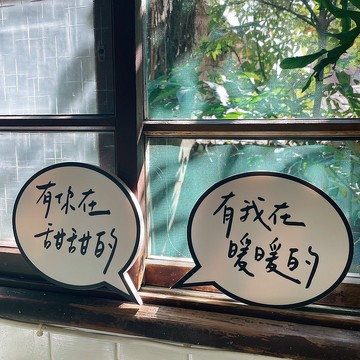 有你在
甜甜的
有我在
暖暖的